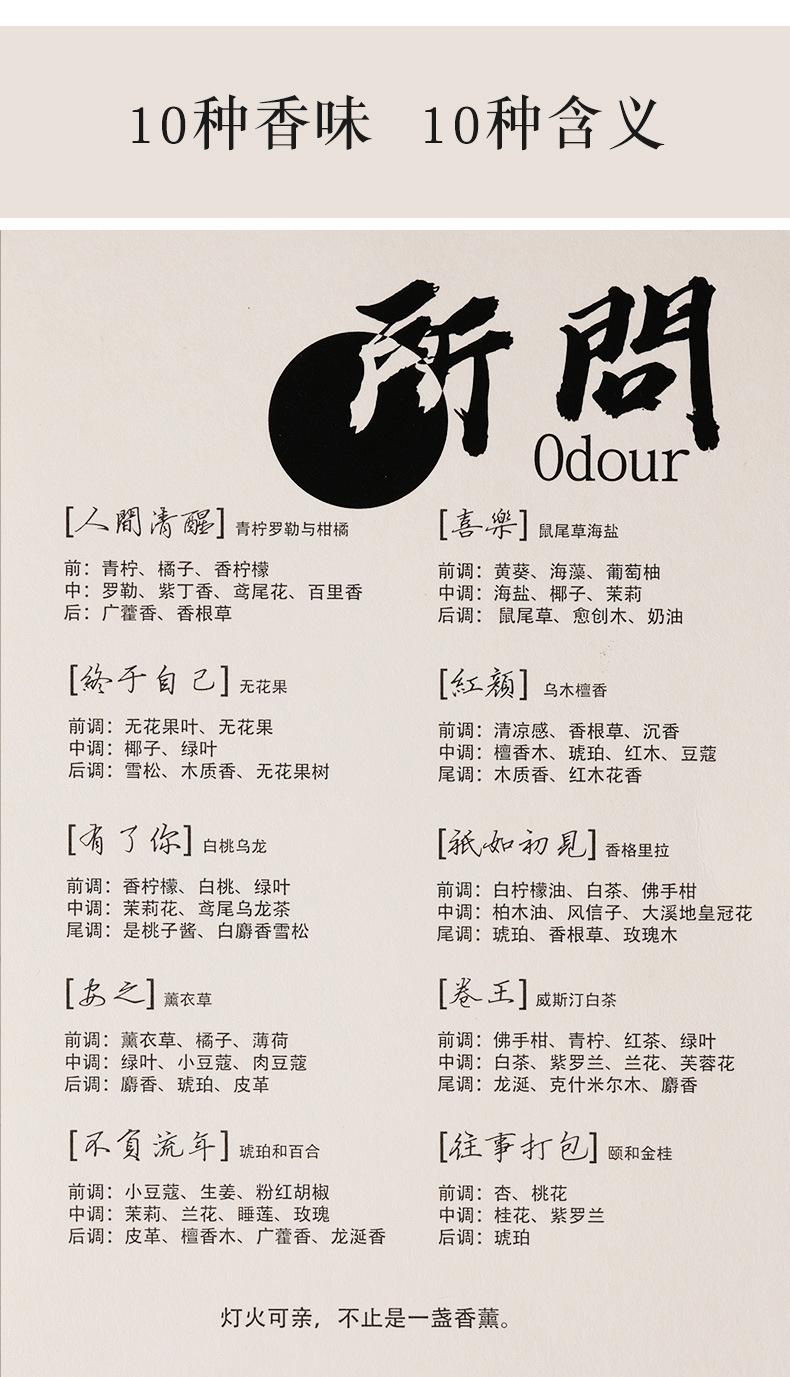 10种香味 10种含义
所問
Odour
[人間清醒] 青柠罗勒与柑橘
前：青柠、橘子、香柠檬
中：罗勒、紫丁香、鸢尾花、百里香
后：广藿香、香根草
[喜樂] 鼠尾草海盐
前调：黄葵、海藻、葡萄柚
中调：海盐、椰子、茉莉
后调： 鼠尾草、愈创木、奶油
[終于自己] 无花果
前调：无花果叶、无花果
中调：椰子、绿叶
后调：雪松、木质香、无花果树
[紅顏] 乌木檀香
前调：清凉感、香根草、沉香
中调：檀香木、琥珀、红木、豆蔻
尾调：木质香、红木花香
[有了你] 白桃乌龙
前调：香柠檬、白桃、绿叶
中调：茉莉花、鸢尾乌龙茶
尾调：是桃子酱、白麝香雪松
[祇如初見] 香格里拉
前调：白柠檬油、白茶、佛手柑
中调：柏木油、风信子、大溪地皇冠花
尾调：琥珀、香根草、玫瑰木
[安之] 薰衣草
前调：薰衣草、橘子、薄荷
中调：绿叶、小豆蔻、肉豆蔻
后调：麝香、琥珀、皮革
[卷王] 威斯汀白茶
前调：佛手柑、青柠、红茶、绿叶
中调：白茶、紫罗兰、兰花、芙蓉花
尾调：龙涎、克什米尔木、麝香
[不負流年] 琥珀和百合
前调：小豆蔻、生姜、粉红胡椒
中调：茉莉、兰花、睡莲、玫瑰
后调：皮革、檀香木、广藿香、龙涎香
[往事打包] 颐和金桂
前调：杏、桃花
中调：桂花、紫罗兰
后调：琥珀
灯火可亲，不止是一盏香薰。